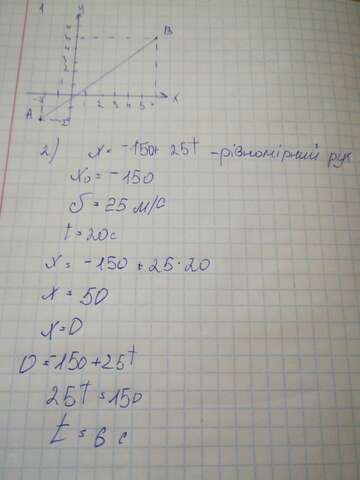 1
y
B
1 2 3 4 5
x
A
2) x = -150 + 25t - рівномірний рух
x₀ = -150
υ = 25 м/с
t = 20 с
x = -150 + 25 · 20
x = 50
x = 0
0 = -150 + 25t
25t = 150
t = 6 с